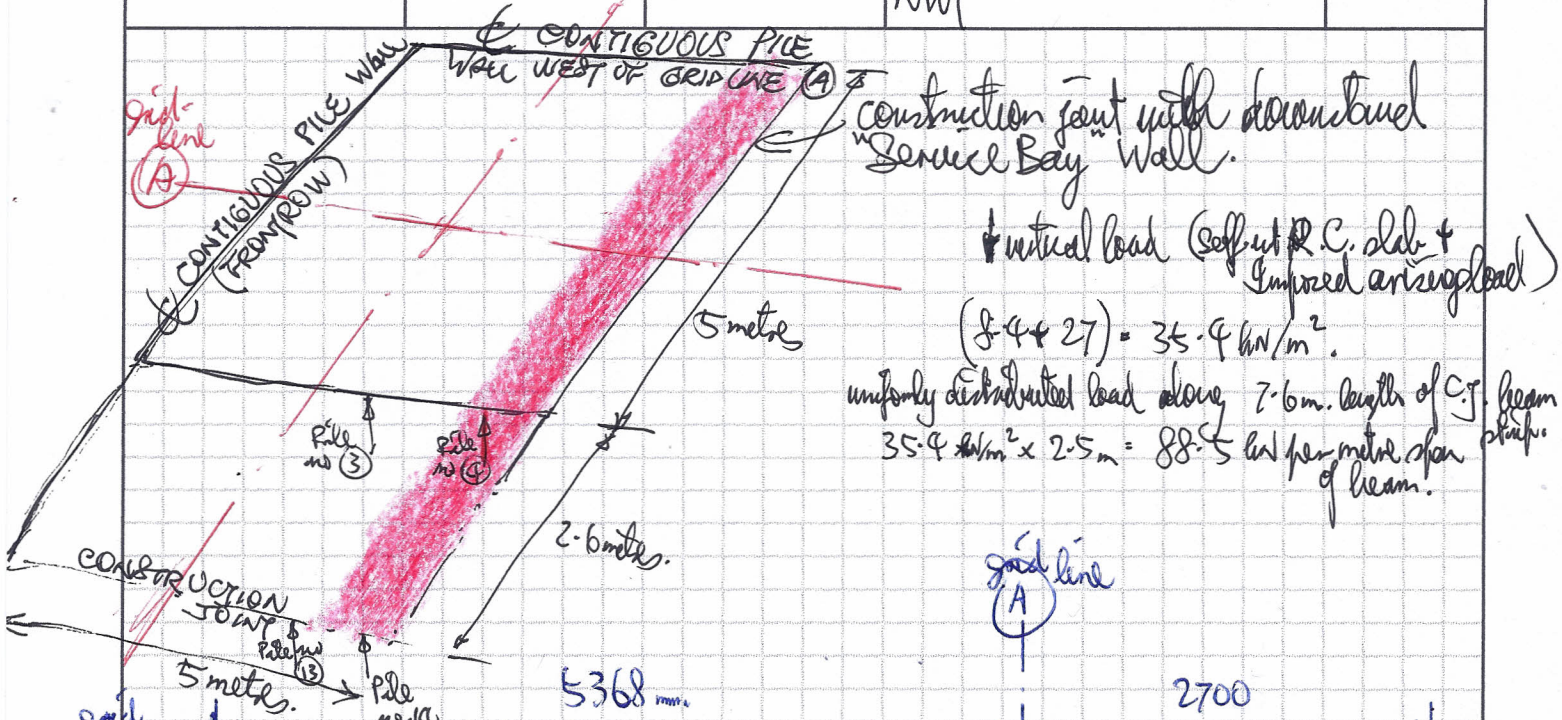 NW
℄ CONTIGUOUS PILE
WALL WEST OF GRIDLINE (A)
grid-
line
(A)
℄ CONTIGUOUS PILE Wall
(FRONT ROW)
construction joint with downstand
"Service Bay" Wall.
vertical load (self wt R.C. slab +
Imposed arising load)
(8.4 + 27) = 35.4 kN/m².
uniformly distributed load along 2.6m. length of C.J. beam
strip.
35.4 kN/m² x 2.5m = 88.5 kN per metre span
of beam.
5 metres
Pile
no (3)
Pile
no (4)
2.6 metres.
CONSTRUCTION
JOINT
Pile no
(13)
5 metres.
Pile
5368 mm.
grid line
(A)
2700